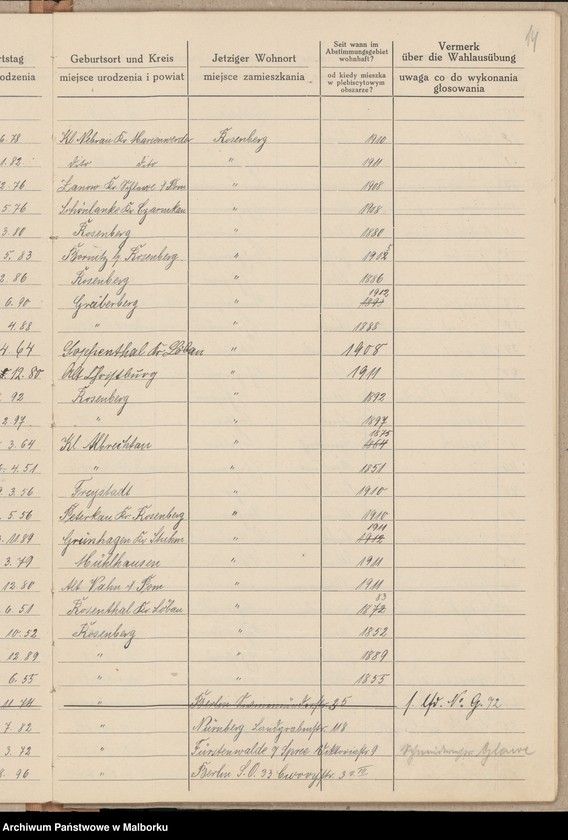 14
rtstag Geburtsort und Kreis Jetziger Wohnort Seit wann im Abstimmungsgebiet wohnhaft? Vermerk über die Wahlausübung
odzenia miejsce urodzenia i powiat miejsce zamieszkania od kiedy mieszka w plebiscytowym obszarze? uwaga co do wykonania głosowania
6. 78 Kl. Nebrau Kr. Marienwerder Rosenberg 1910
1. 82 dito dito " 1911
2. 76 Zanow Kr. Schlawe i/Pom " 1908
5. 76 Schönlanke Kr. Czarnikau " 1908
3. 80 Rosenberg " 1880
5. 83 Rosenberg " 1912
2. 86 Rosenberg " 1886
1912
6. 90 " 1891
4. 88 " " 1888
4 64 Kr. Löbau " 1908
12. 80 Alt " 1911
92 Rosenberg " 1892
2. 97 " " 1897
1875
3. 64 Kl. Albrechtau "
4. 51 " " 1851
3. 56 Freystadt " 1910
5. 56 Peterkau Kr. Rosenberg " 1910
1911
11 89 Grünhagen Kr. Stuhm " 1912
3. 79 Mühlhausen " 1911
12. 80 Alt i/Pom " 1911
83
6. 51 Rosenthal Kr. Löbau " 1872
10. 52 Rosenberg " 1852
12. 89 " " 1889
6. 55 " " 1855
11. 74 Berlin 35 f. lfd. No G. 72
7. 82 " Nürnberg Landgrabenstr. 118
3. 72 " Fürstenwalde Spree Viktoriastr. 9
8. 96 " Berlin S.O. 33
Archiwum Państwowe w Malborku